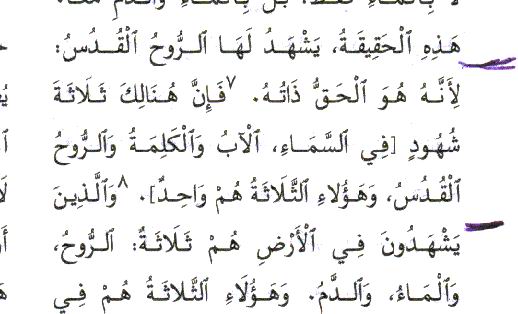 لا بِٱلْمَاءِ فَقَطْ، بَلْ بِٱلْمَاءِ وَٱلدَّمِ مَعًا.
هَذِهِ ٱلْحَقِيقَةُ، يَشْهَدُ لَهَا ٱلرُّوحُ ٱلْقُدُسُ:
لِأَنَّهُ هُوَ ٱلْحَقُّ ذَاتُهُ. ٧فَإِنَّ هُنَالِكَ ثَلَاثَةَ
شُهُودٍ [فِي ٱلسَّمَاءِ، ٱلْآبُ وَٱلْكَلِمَةُ وَٱلرُّوحُ
ٱلْقُدُسُ، وَهَؤُلَاءِ ٱلثَّلَاثَةُ هُمْ وَاحِدٌ]. ٨وَٱلَّذِينَ
يَشْهَدُونَ فِي ٱلْأَرْضِ هُمْ ثَلَاثَةٌ: ٱلرُّوحُ،
وَٱلْمَاءُ، وَٱلدَّمُ. وَهَؤُلَاءِ ٱلثَّلَاثَةُ هُمْ فِي